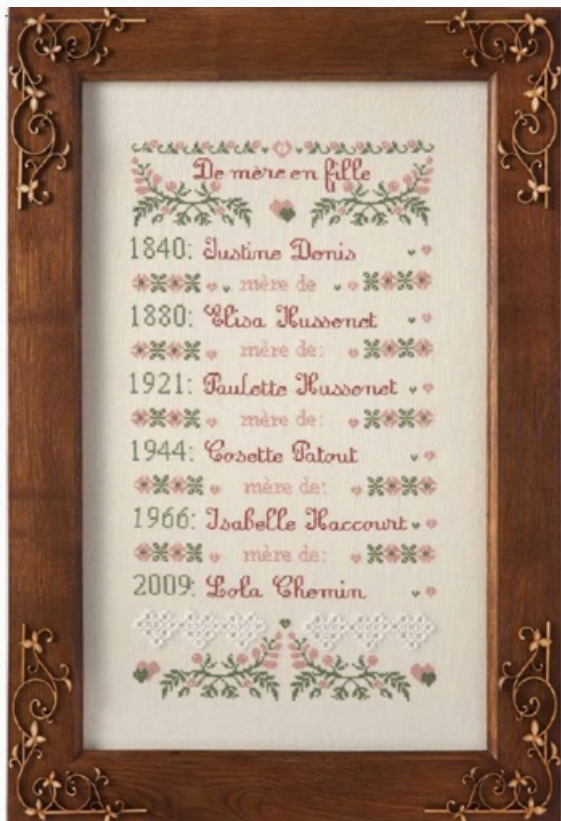 De mère en fille
1840: Justine Donis
mère de
1880: Elisa Hussonet
mère de:
1921: Paulette Hussonet
mère de:
1944: Cosette Patout
mère de:
1966: Isabelle Haccourt
mère de:
2009: Lola Chemin